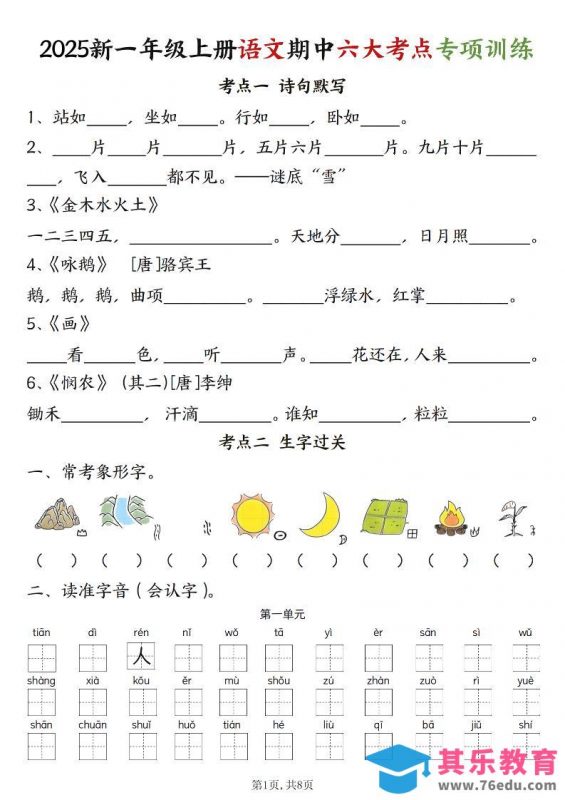 2025新一年级上册语文期中六大考点专项训练
考点一 诗句默写
1、站如____，坐如____。行如____，卧如____。
2、____片____片______片，五片六片______。九片十片________，飞入______都不见。——谜底“雪”
3、《金木水火土》
一二三四五，______________。天地分______，日月照______。
4、《咏鹅》 [唐]骆宾王
鹅，鹅，鹅，曲项________。________浮绿水，红掌________。
5、《画》
____看____色，____听____声。____花还在，人来________。
6、《悯农》(其二)[唐]李绅
锄禾________，汗滴________。谁知________，粒粒________。
考点二 生字过关
一、常考象形字。
( ) ( ) ( ) ( ) ( ) ( ) ( ) ( )
二、读准字音（会认字）。
第一单元
tiān dì rén nǐ wǒ tā yì èr sān sì wǔ
人
shàng xià kǒu ěr mù shǒu zú zhàn zuò rì yuè
shān chuān shuǐ huǒ tián hé liù qī bā jiǔ shí
第1页，共8页
其乐教育
www.76edu.com